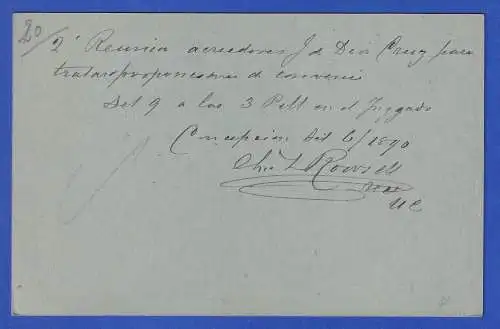 20/
2ª Reunion acreedores J de Dios Cruz para
tratar proposiciones de convenio
Set 9 a las 3 P M en el Juzgado
Concepcion Set 6/1890
Roussel